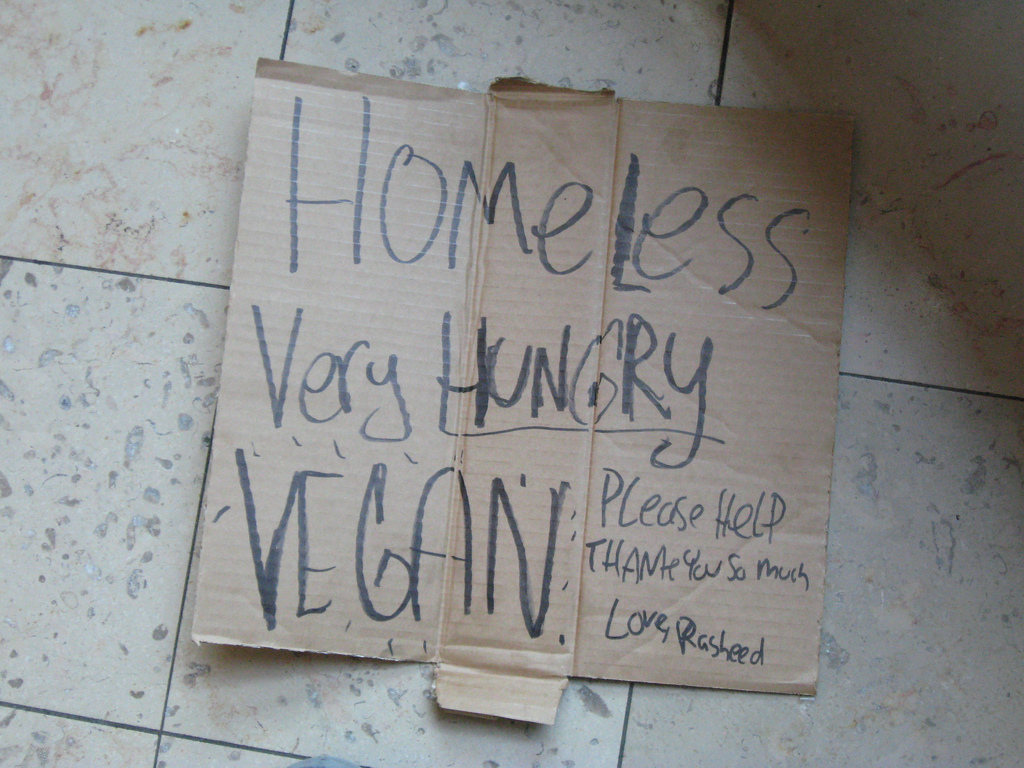 HOMeLess
Very HUNGRY
VEGAN.
PLease HeLP
THANK You So much
Love, Rasheed